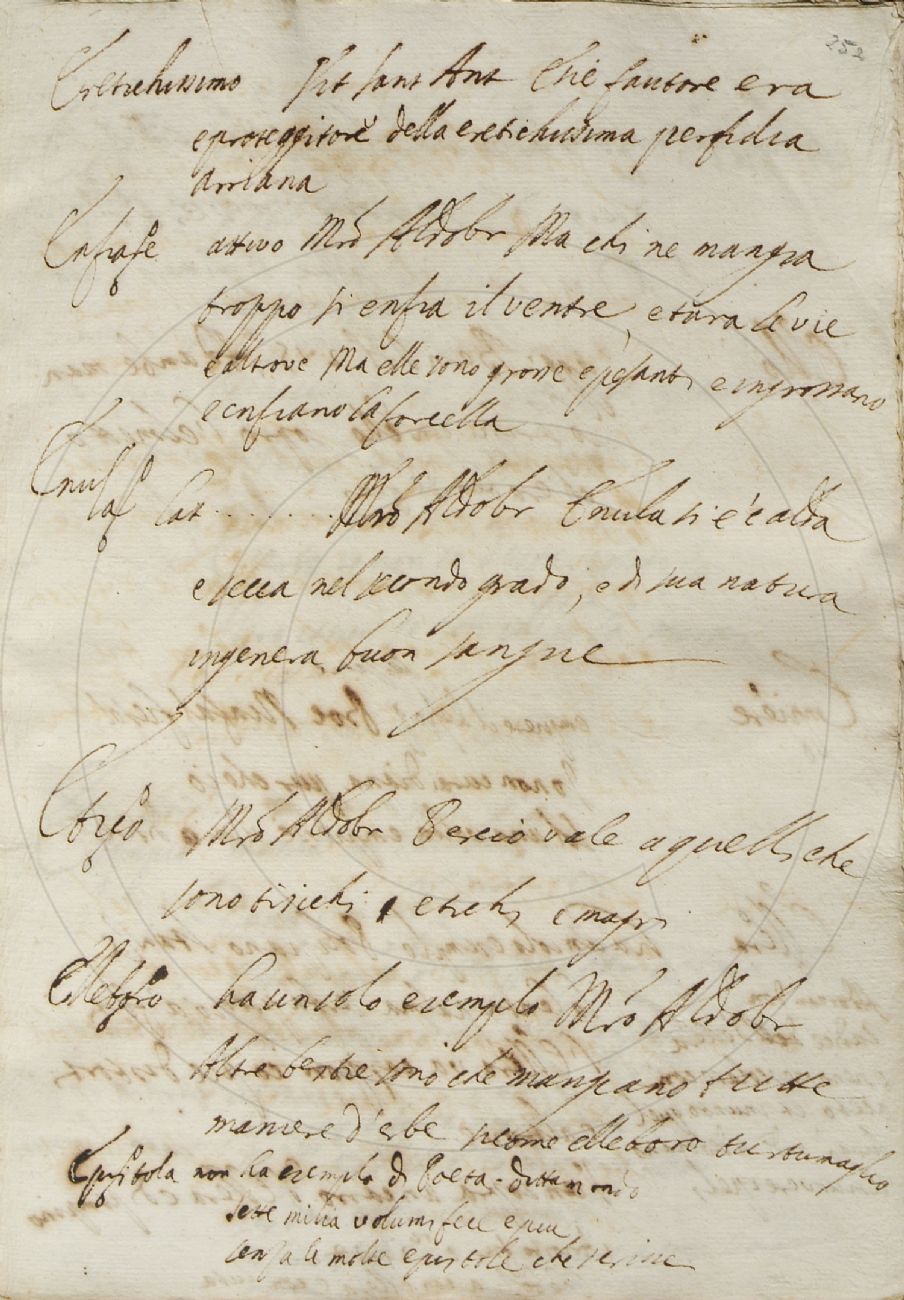 252
Eretichissimo Vit Sant Ant Che fautore era
e proteggitore della eretichissima perfidia
arriana
Enfiare attivo Mro Aldobr Ma chi ne mangia
troppo si enfia il ventre, e tura le vie
e altrove Ma elle sono grosse e pesanti e ingrossano
e enfiano la forcella
Enula lat . . . . . . . Mro Aldobr Enula si è calda
e secca nel secondo grado, e di sua natura
ingenera buon sangue
Etico Mro Aldobr Perciò vale a quelli che
sono tisichi, etichi e magri
Elleboro ha un solo esempio Mro Aldobr
Altre bestie sono che mangiano tutte
maniere d'erbe siccome elleboro turtumaglio
Epistola non ha esemplo di Poeta. dittamondo
sette milia volumi fece e piu
senza le molte epistole che scrisse